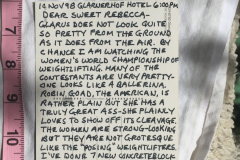 12 NOV 98 GLARNERHOF HOTEL 6:00PM
DEAR SWEET REBECCA-
GLARUS DOES NOT LOOK QUITE
SO PRETTY FROM THE GROUND
AS IT DOES FROM THE AIR. BY
CHANCE I AM WATCHING THE
WOMEN'S WORLD CHAMPIONSHIP OF
WEIGHTLIFTING. MANY OF THE
CONTESTANTS ARE VERY PRETTY-
ONE LOOKS LIKE A BALLERINA,
ROBIN GOAD, THE AMERICAN, IS
RATHER PLAIN BUT SHE HAS A
TRULY GREAT ASS-SHE PLAINLY
LOVES TO SHOW OFF ITS CLEAVAGE.
THE WOMEN ARE STRONG-LOOKING
BUT THEY ARE NOT GROTESQUE
LIKE THE "POSING" WEIGHTLIFTERS.
I'VE DONE 7 NEW CONCRETE BLOCK